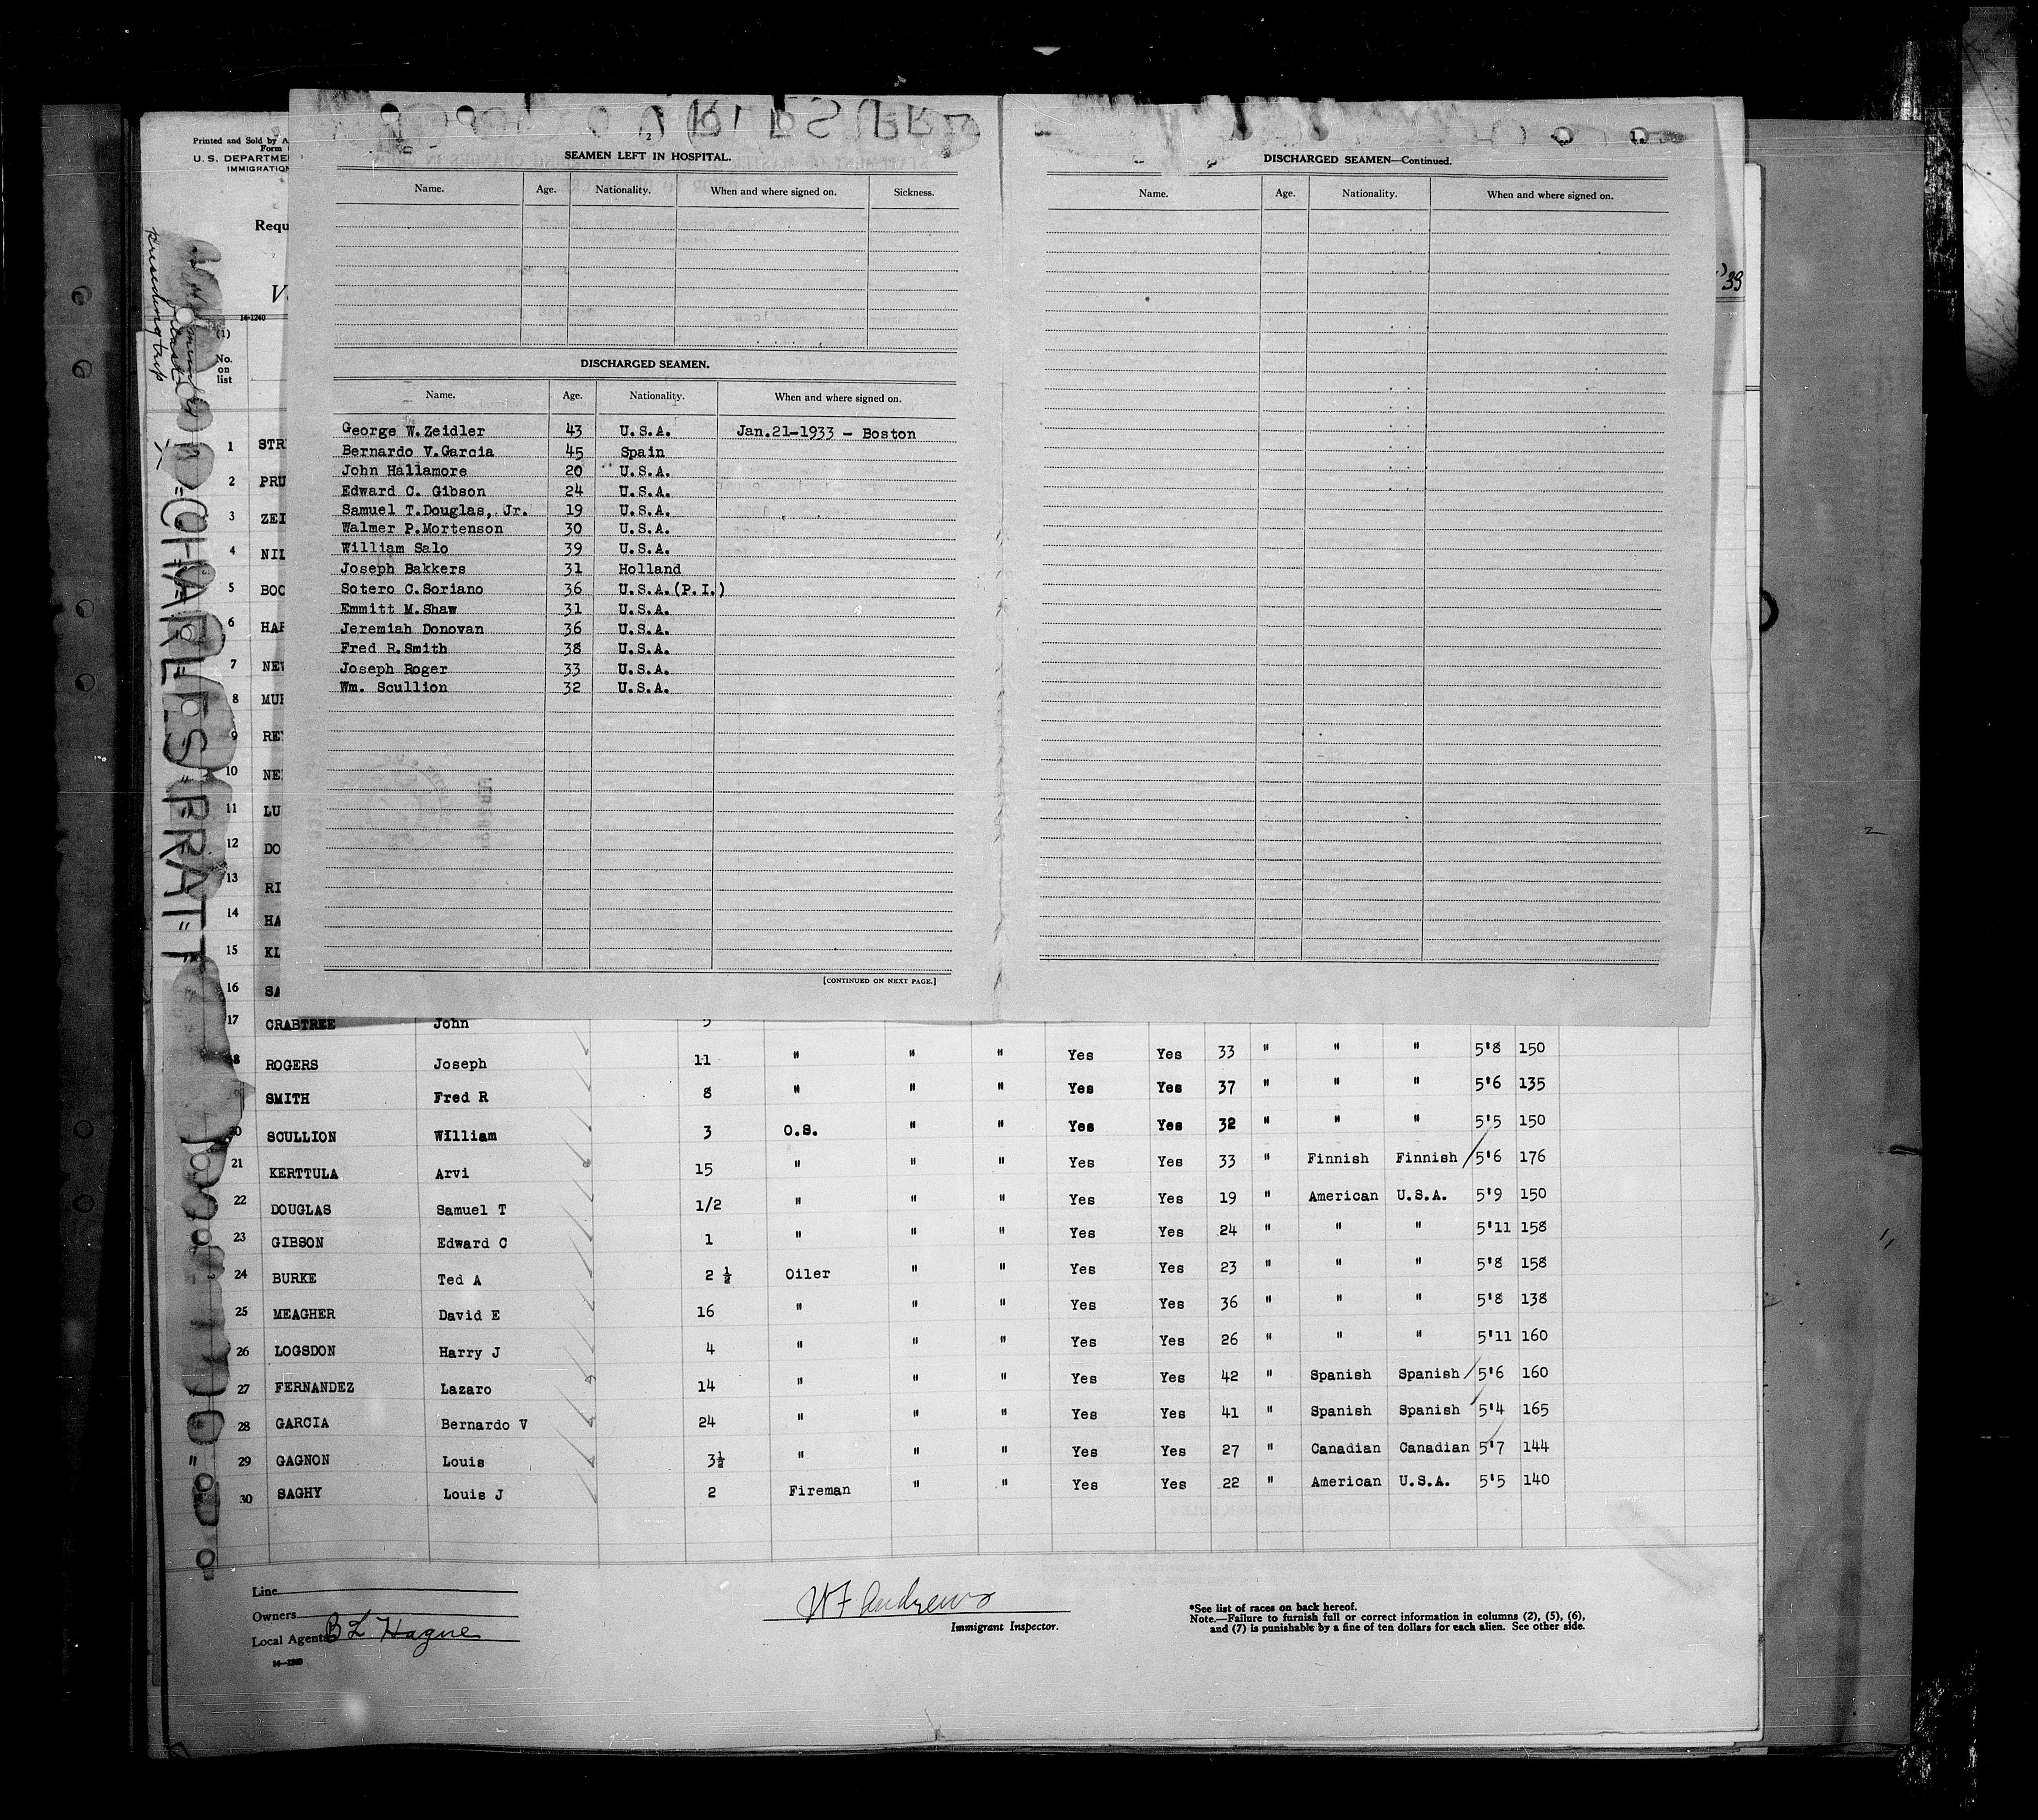 Printed and Sold by A
Form
U. S. DEPARTME
IMMIGRATION
Requ
V
14-1240
(1)
No.
on
list
preceding trip
CHARLES PRATT
'33
2
SEAMEN LEFT IN HOSPITAL.
Name. Age. Nationality. When and where signed on. Sickness.
DISCHARGED SEAMEN.
Name. Age. Nationality. When and where signed on.
George W.Zeidler 43 U.S.A. Jan.21-1933 - Boston
Bernardo V.Garcia 45 Spain
John Hallamore 20 U.S.A.
Edward C. Gibson 24 U.S.A.
Samuel T.Douglas, Jr. 19 U.S.A.
Walmer P.Mortenson 30 U.S.A.
William Salo 39 U.S.A.
Joseph Bakkers 31 Holland
Sotero C.Soriano 36 U.S.A.(P.I.)
Emmitt M.Shaw 31 U.S.A.
Jeremiah Donovan 36 U.S.A.
Fred R.Smith 38 U.S.A.
Joseph Roger 33 U.S.A.
Wm. Scullion 32 U.S.A.
[CONTINUED ON NEXT PAGE.]
DISCHARGED SEAMEN—Continued.
Name. Age. Nationality. When and where signed on.
1 STR
2 PRU
3 ZEI
4 NIL
5 BOO
6 HAR
7 NEW
8 MUR
9 REY
10 NE
11 LU
12 DO
13 RI
14 HA
15 KL
16 SA
17 CRABTREE John 5
18 ROGERS Joseph 11 " " " Yes Yes 33 " " " 5'8 150
19 SMITH Fred R 8 " " " Yes Yes 37 " " " 5'6 135
20 SCULLION William 3 O.S. " " Yes Yes 32 " " " 5'5 150
21 KERTTULA Arvi 15 " " " Yes Yes 33 " Finnish Finnish 5'6 176
22 DOUGLAS Samuel T 1/2 " " " Yes Yes 19 " American U.S.A. 5'9 150
23 GIBSON Edward C 1 " " " Yes Yes 24 " " " 5'11 158
24 BURKE Ted A 2 ½ Oiler " " Yes Yes 23 " " " 5'8 158
25 MEAGHER David E 16 " " " Yes Yes 36 " " " 5'8 138
26 LOGSDON Harry J 4 " " " Yes Yes 26 " " " 5'11 160
27 FERNANDEZ Lazaro 14 " " " Yes Yes 42 " Spanish Spanish 5'6 160
28 GARCIA Bernardo V 24 " " " Yes Yes 41 " Spanish Spanish 5'4 165
29 GAGNON Louis 3½ " " " Yes Yes 27 " Canadian Canadian 5'7 144
30 SAGHY Louis J 2 Fireman " " Yes Yes 22 " American U.S.A. 5'5 140
Line
Owners
Local Agents B L Hague
14—1240
W F Andrews
Immigrant Inspector.
*See list of races on back hereof.
Note.—Failure to furnish full or correct information in columns (2), (5), (6),
and (7) is punishable by a fine of ten dollars for each alien. See other side.